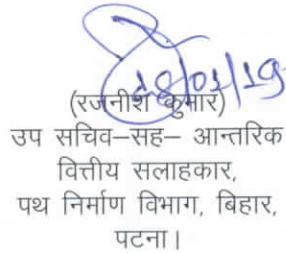 18/01/19
(रजनीश कुमार)
उप सचिव–सह– आन्तरिक
वित्तीय सलाहकार,
पथ निर्माण विभाग, बिहार,
पटना।